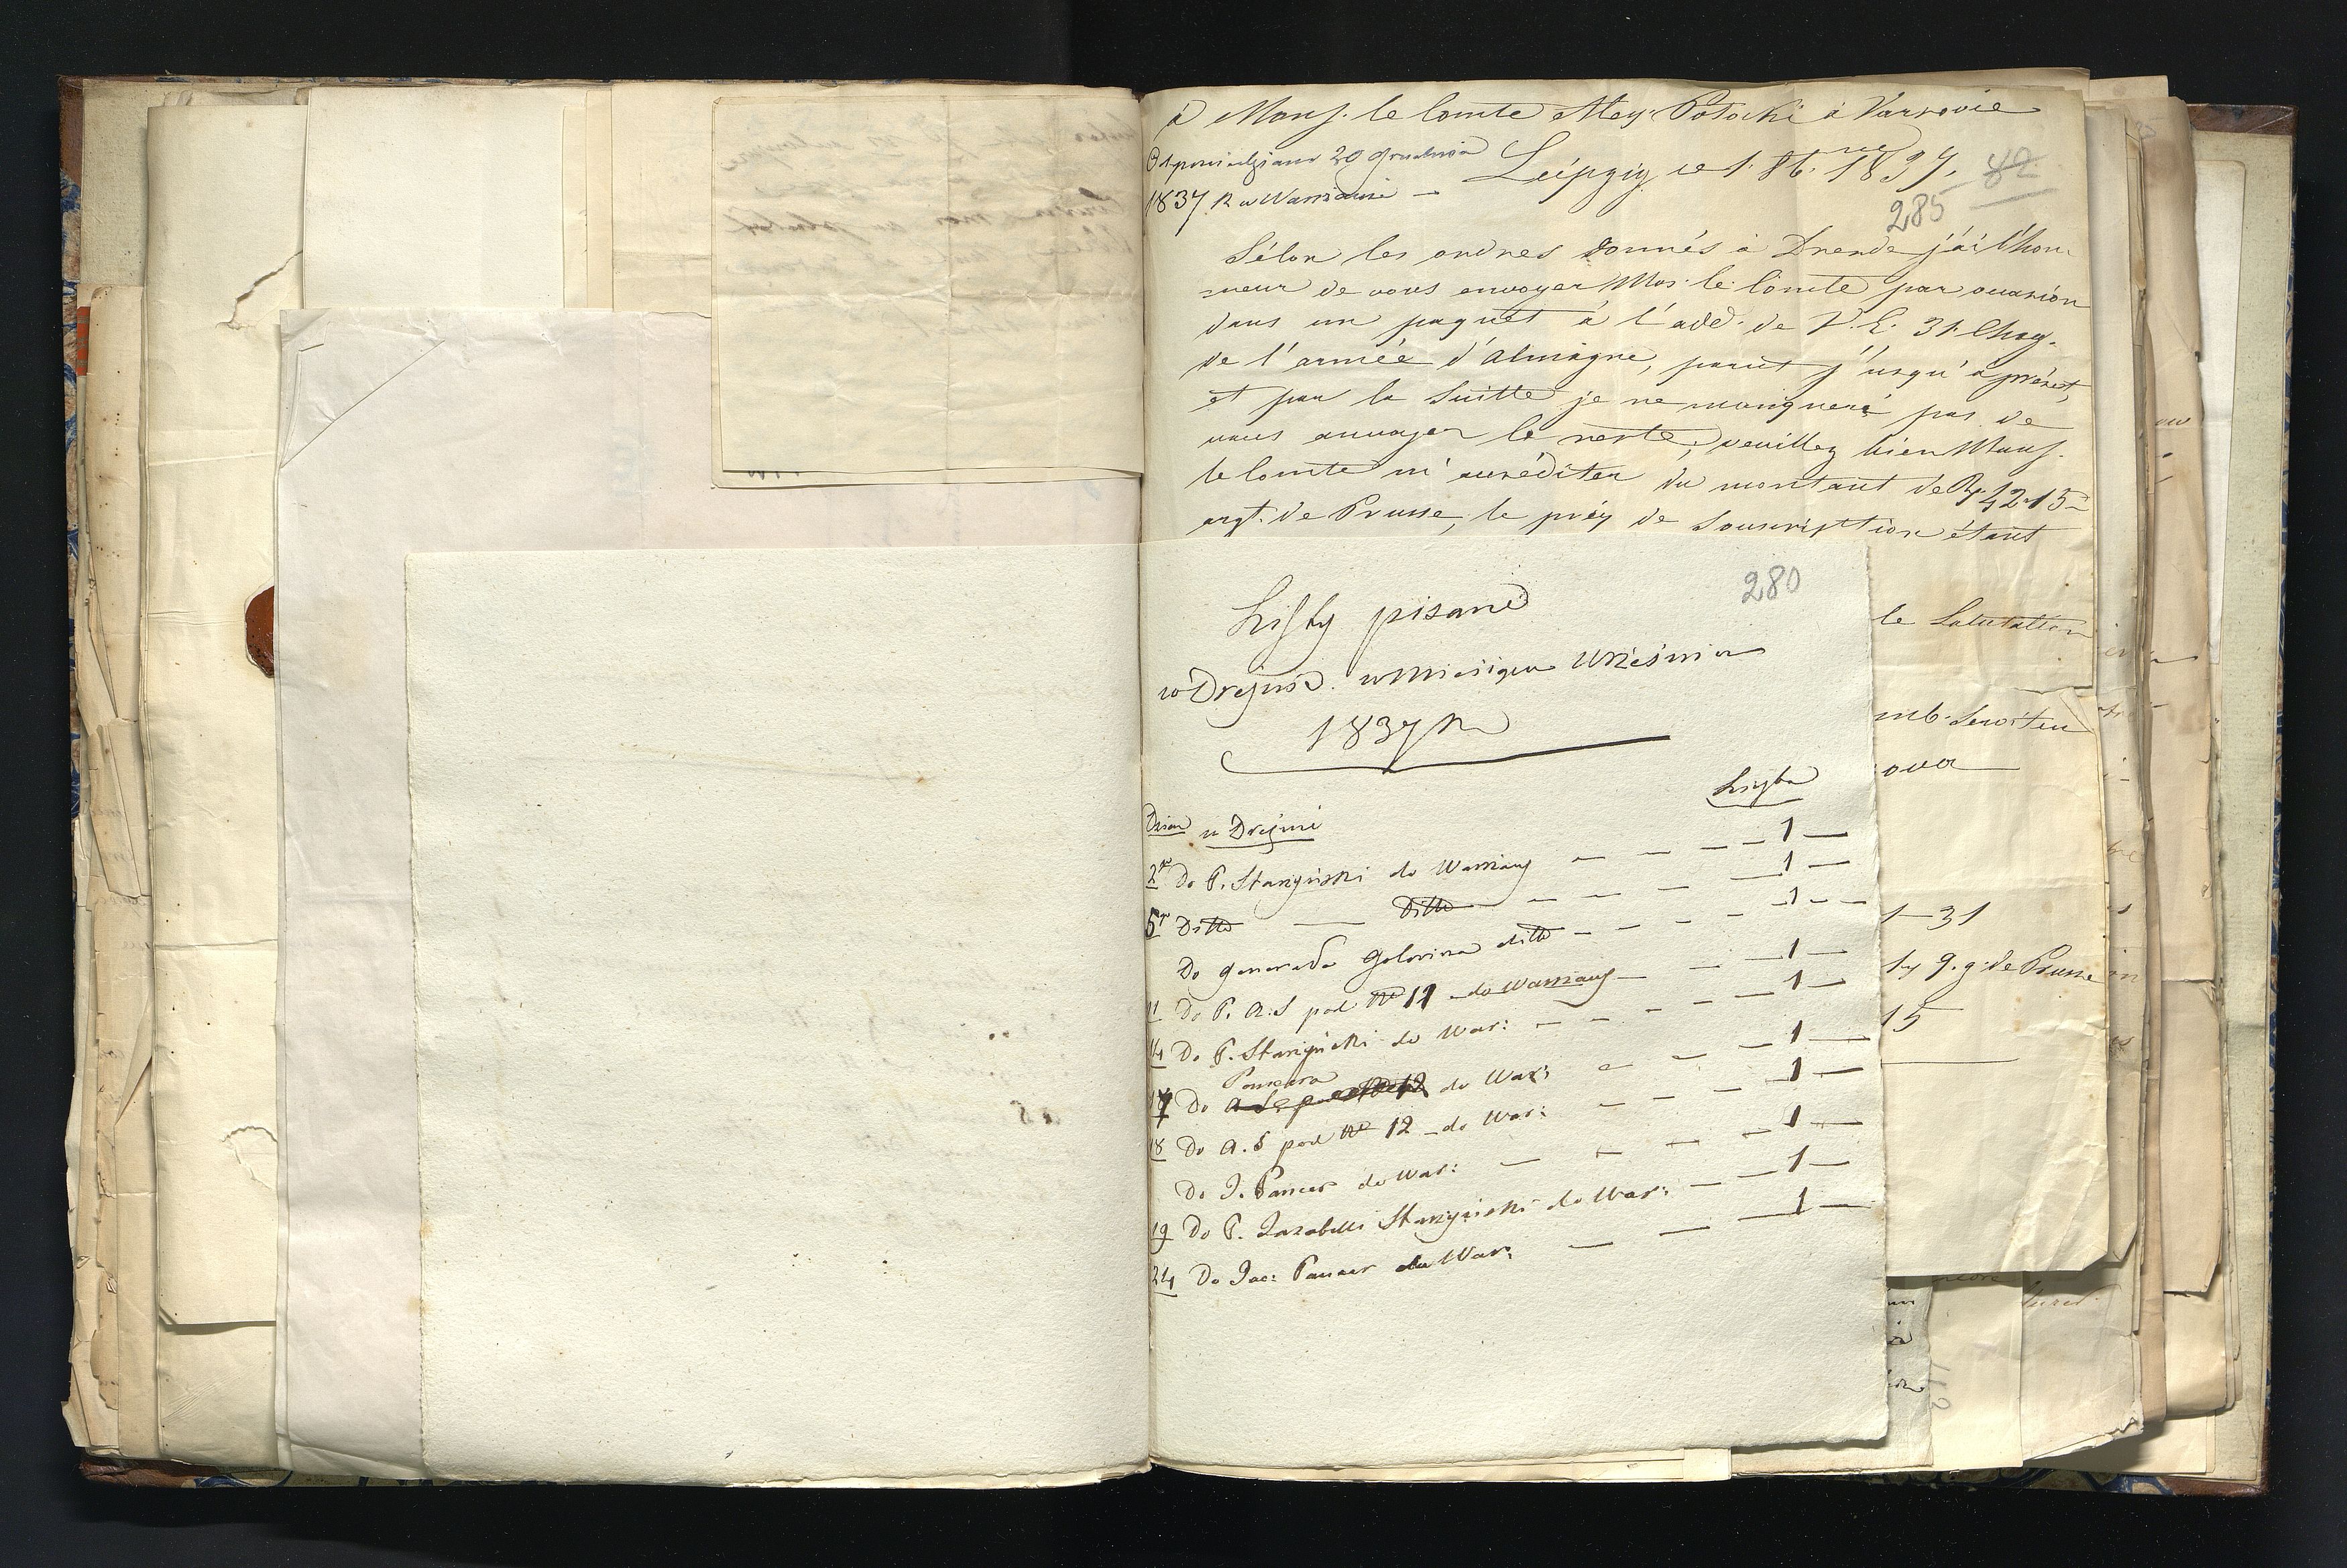 à Mons. le Comte Alex. Potocki à Varsovie
Odpowiedziano 20 Grudnia
1837 R w Warszawie —
Leipzig ce 1. 8b. 1837.
82
285
Sélon les ordres donnés à Dresde j'ái l'hon-
-neur de vous envoyer Mos. le Comte par ocasion
dans un paquét à l'add. de V. E. 31.
de l'armée d'Almagne, parut j'usqu'à présent,
et par la Suitte je ne manquerá pas de
vous anvoyer le reste; veuillez bien Mons.
le Comte m'accréditer du montant de R 42.15
argt. de Prusse, le prix de Souscripttion étant
le Salutation
ova
1—31
9. g. de Prusse
15
280
Listy pisane
w Dreźnie w Miesiącu Wrześniu
1837 R
Liczba
Dnia w Dreźnie
2go Do P. Starzyński do Warszawy — — — — 1 —
5go Ditto — Ditto — — — — 1 —
Do Generała Golovina ditto — — — — 1 —
11 Do P. A. S pod No 11 — do Warszawy — — — 1 —
14 Do P. Starzyński do War: — — — — 1 —
Pancera
17 Do do War: — — — 1 —
18 Do A. S pod No 12 — do War: — — — 1 —
Do J. Pancer do War: — — — — 1 —
19 Do P. Izabelli Starzyński do War: — — 1 —
24 Do Jac: Pancer do War: — — — 1 —